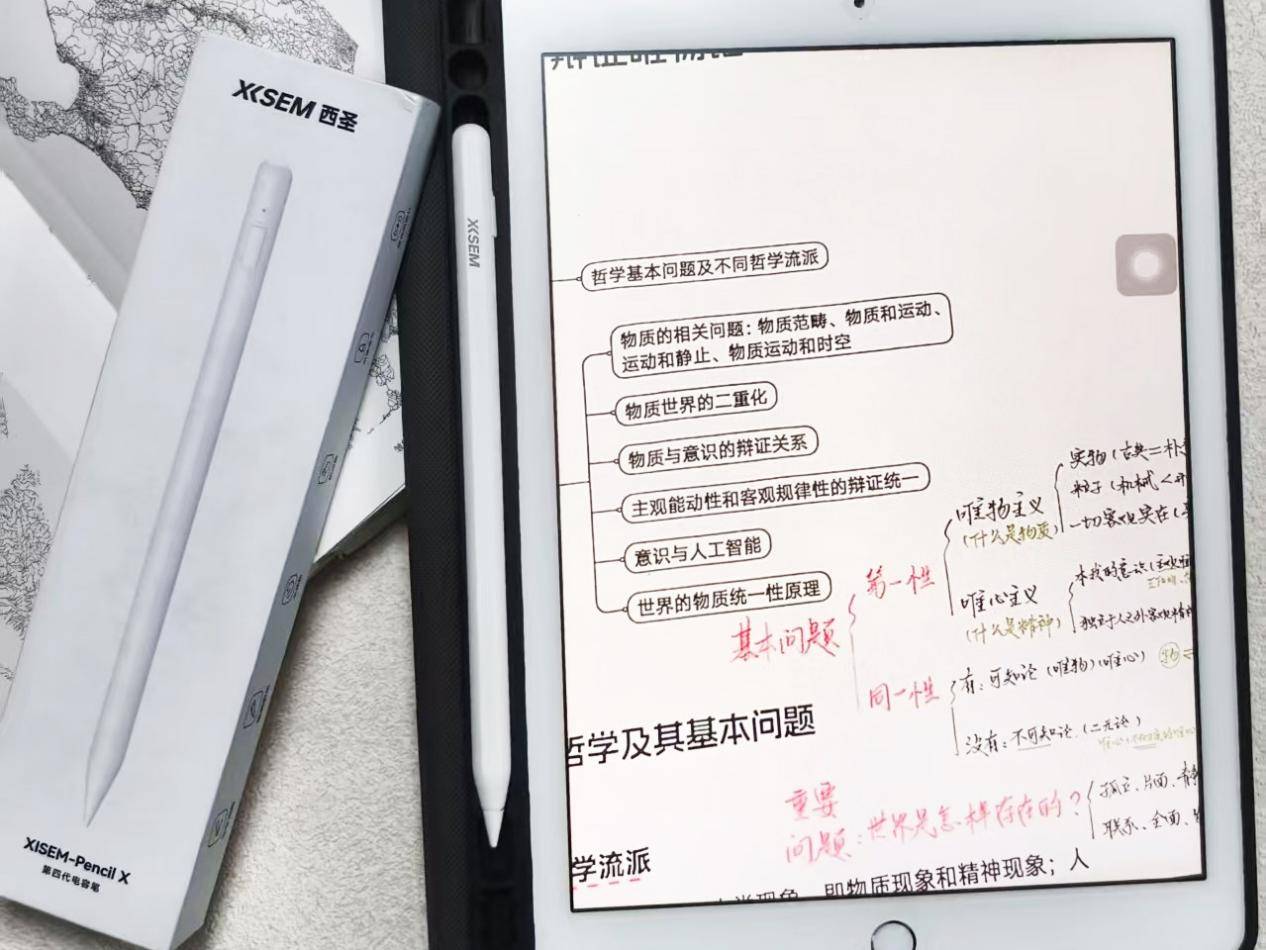 XISEM 西圣
XISEM-Pencil X
第四代电容笔
XISEM
哲学基本问题及不同哲学流派
物质的相关问题：物质范畴、物质和运动、
运动和静止、物质运动和时空
物质世界的二重化
物质与意识的辩证关系
主观能动性和客观规律性的辩证统一
意识与人工智能
世界的物质统一性原理
基本问题
第一性
唯物主义
(什么是物质)
实物(古典=朴
粒子(机械<
一切客观实在(
唯心主义
(什么是精神)
本我的意识(主观唯
独立于人之外客观精神
同一性
有：可知论(唯物)(唯心)
没有：不可知论.(二元论)
哲学及其基本问题
重要
问题：世界是怎样存在的？
孤立、片面、静
联系、全面、
学流派
即物质现象和精神现象；人